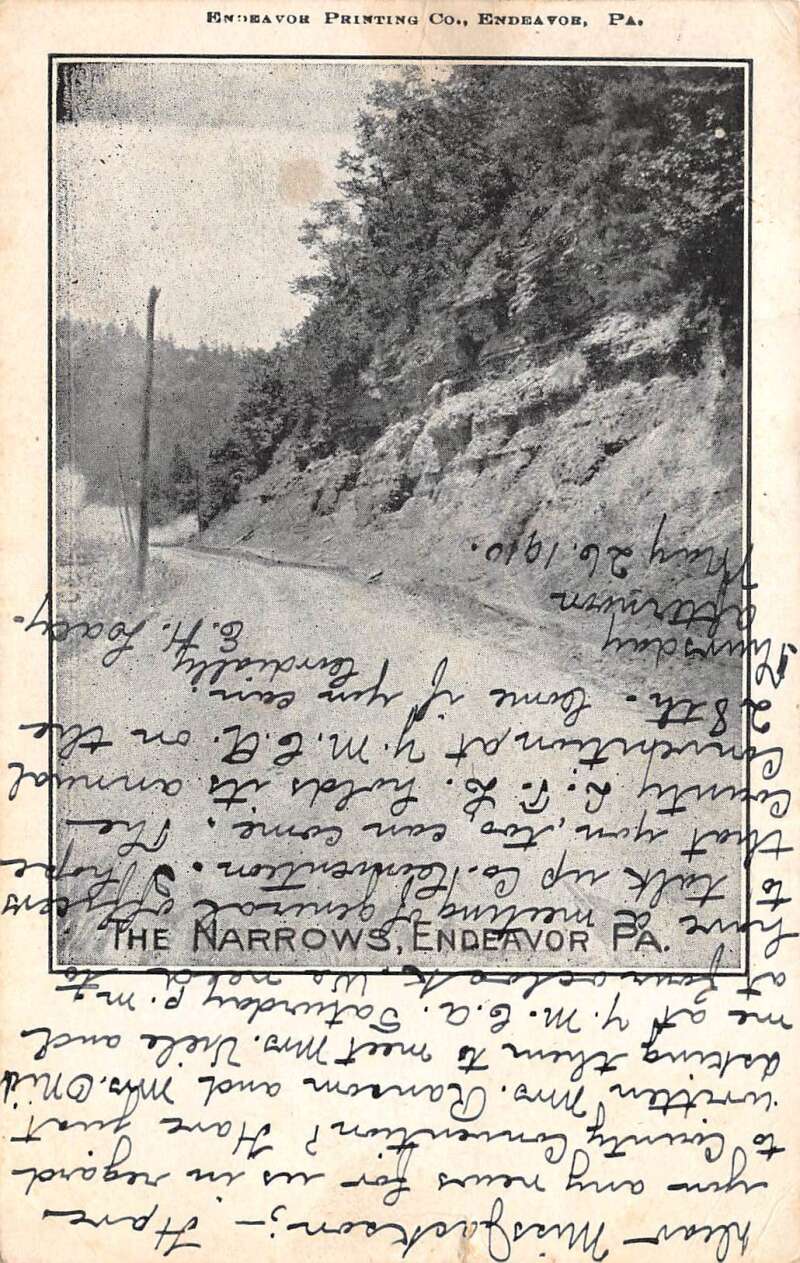 ENDEAVOR PRINTING CO., ENDEAVOR, PA.
THE NARROWS, ENDEAVOR PA.
Dear Miss Jackson;- Have
you any news for us in regard
to County Convention? Have just
written Mrs. Ransom and Mrs.
asking them to meet Mrs. Viele and
me at Y. M. C. A. Saturday p. m.
at four oclock. We need to
have a meeting of general officers
to talk up Co. Convention. I hope
that you, too, can come. The
County L. T. L. holds its annual
Convention at Y. M. C. A. on the
28th. Come if you can.
Cordially
E. H.
Thursday
afternoon
May 26. 1910.